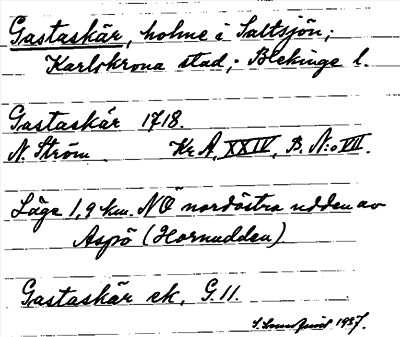 Gastaskär, holme i Saltsjön;
Karlskrona stad; Blekinge l.
Gastaskär 1718.
N. Ström Kr A, XXIV, B. N:o VII.
Läge 1,9 km. NO nordöstra udden av
Aspö (Hornudden)
Gastaskär ek. G. 11.
1937.